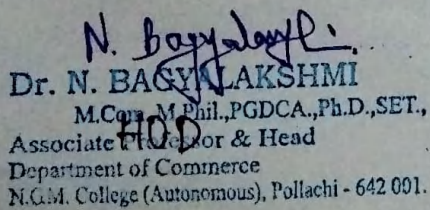 N. Bagyalakshmi.
Dr. N. BAGYALAKSHMI
M.Com., M.Phil.,PGDCA.,Ph.D.,SET.,
HOD
Associate Professor & Head
Department of Commerce
N.G.M. College (Autonomous), Pollachi - 642 001.